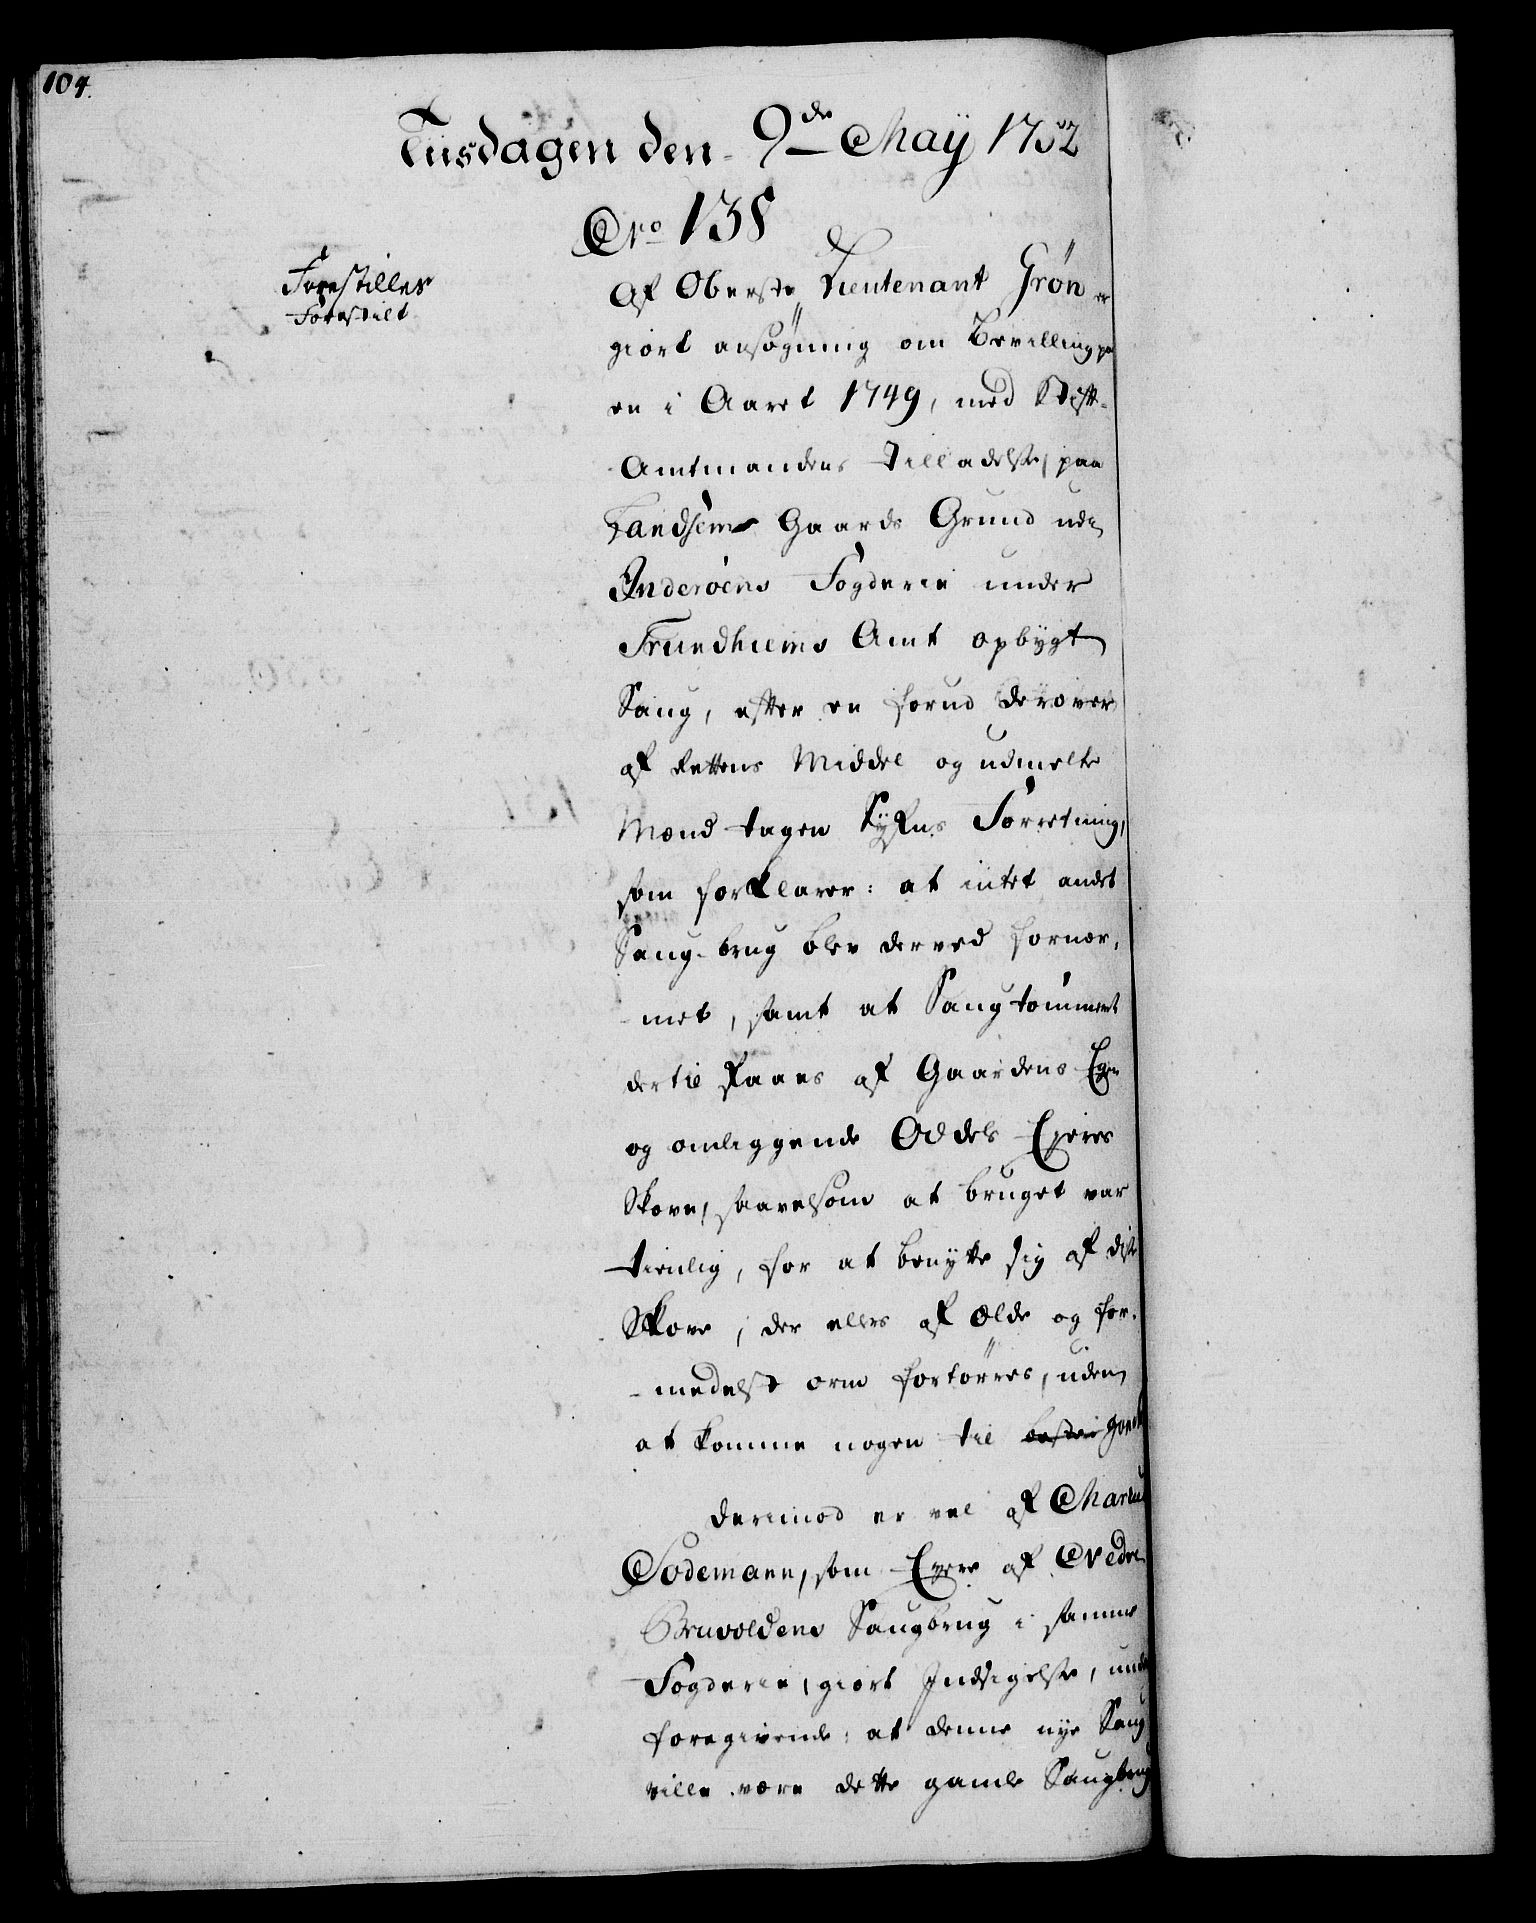 104.
Tiisdagen den 9de Maÿ 1752
No 138
Forestilles
Forestilt
Af Oberste Lieutenant Grön er
giort ansøgning om Bevilling paa
en i Aaret 1749, med Stift-
Amtmandens Tilladelse, paa
Landsems Gaards Grund udi
Inderöens Fogderie under
Trundhiems Amt opbÿgt
Saug, efter en forud derover
af Rettens Middel og udmelte
Mænd tagen Sÿns Forretning,
som forklarer: at intet andet
Saug-brug blev derved fornær-
met, samt at Saugtömmeret
dertil faaes af Gaardens Egen
og omliggende Oddels Eyeres
Skove, saavelsom at bruget var
tienlig, for at benÿtte sig af disse
Skove, der ellers af Ælde og for-
medelst orm fortörres, uden
at komme nogen til gavn
Derimod er vel af
Sodemann, som Eyere af Nedre
Bruvoldens Saugbrug i samme
Fogderie, giort Indsigelse, under
foregivende: at denne nye Saug
ville være dette gamle Saugbrug